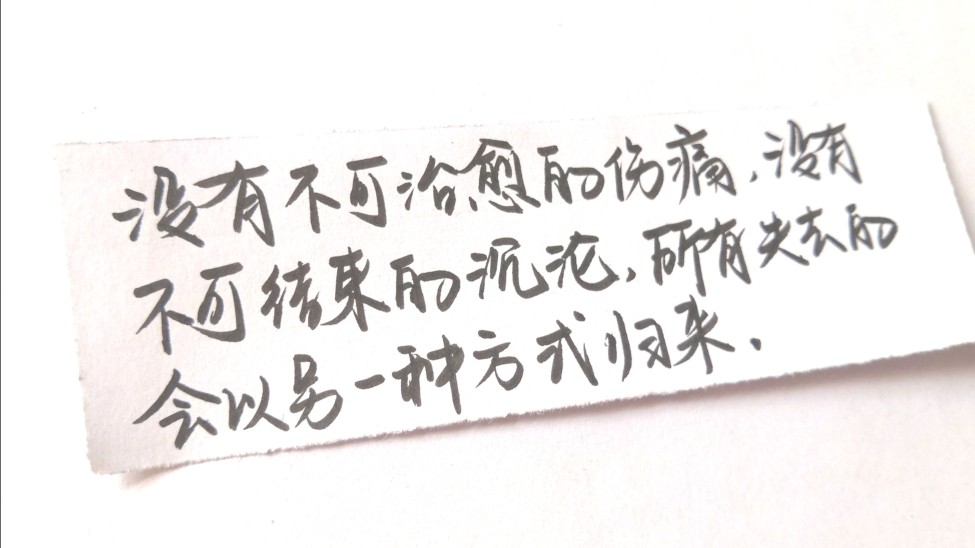 没有不可治愈的伤痛,没有
不可结束的沉沦,所有失去的
会以另一种方式归来.